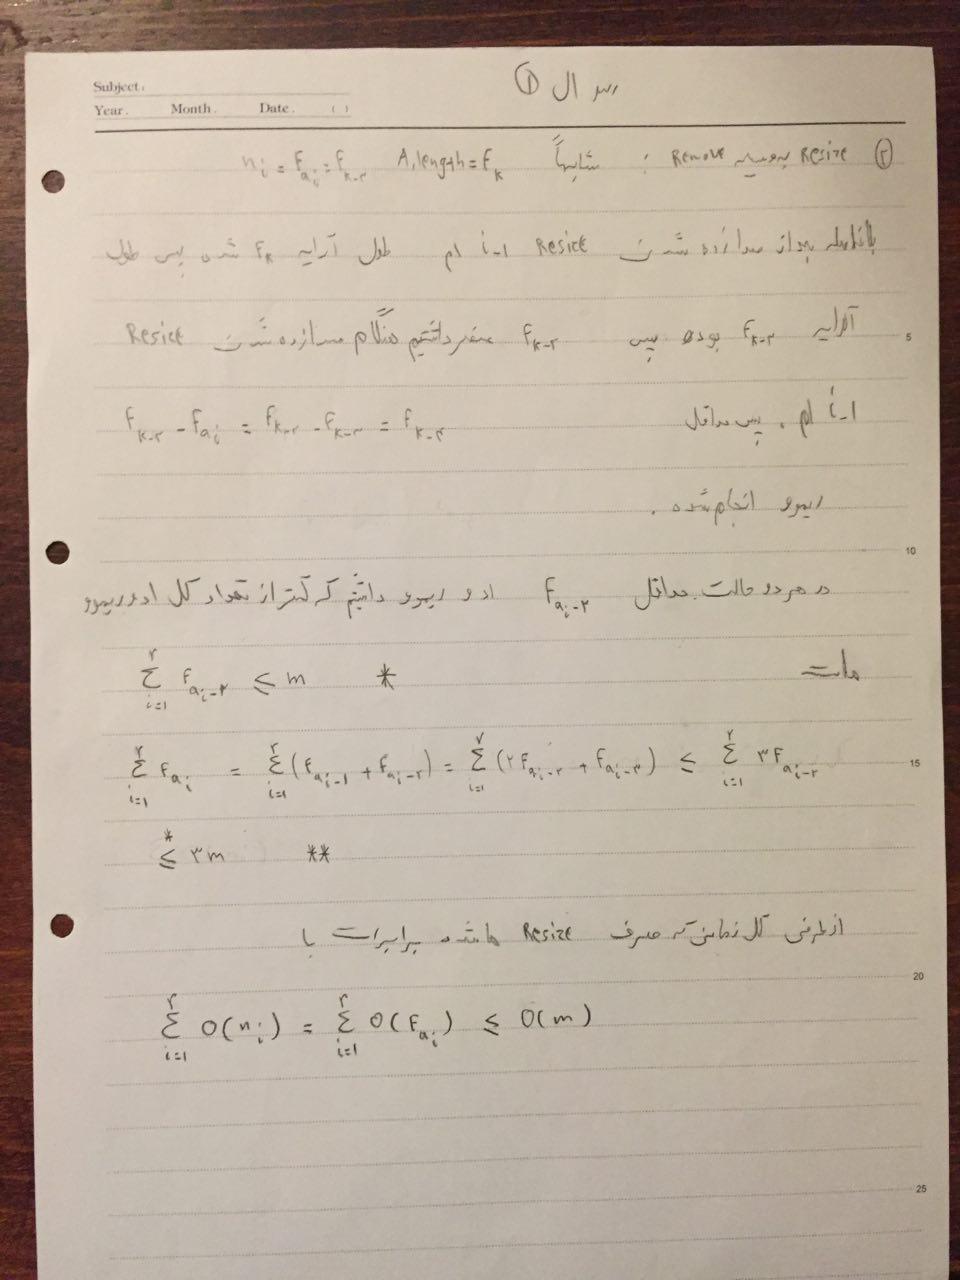 Subject:
Year. Month. Date. ( )
سوال ①
② Resize بوسیله Remove : مشابهاً A.length = F_k n_i = F_{a_i} = F_{k-۳}
بلافاصله بعد از صدا زده شدن Resize i-1 ام طول آرایه F_k شده پس طول
آرایه F_{k-۲} بوده پس F_{k-۲} عنصر داشتیم هنگام صدا زده شدن Resize
5
i-1 ام، پس حداقل F_{k-۲} - F_{a_i} = F_{k-۲} - F_{k-۳} = F_{k-۴}
ریموو انجام شده.
10
در هر دو حالت حداقل F_{a_i-۲} اد و ریموو داشتیم که کمتر از تعداد کل اد و ریموو
هاست
Σ_{i=1}^{r} F_{a_i-۲} ≤ m *
Σ_{i=1}^{r} F_{a_i} = Σ_{i=1}^{r} (F_{a_i-1} + F_{a_i-۲}) = Σ_{i=1}^{r} (۲F_{a_i-۲} + F_{a_i-۳}) ≤ Σ_{i=1}^{r} ۳F_{a_i-۲}
15
≤* ۳m **
از طرفی کل زمانی که صرف Resize ها شده برابر است با
20
Σ_{i=1}^{r} O(n_i) = Σ_{i=1}^{r} O(F_{a_i}) ≤ O(m)
25